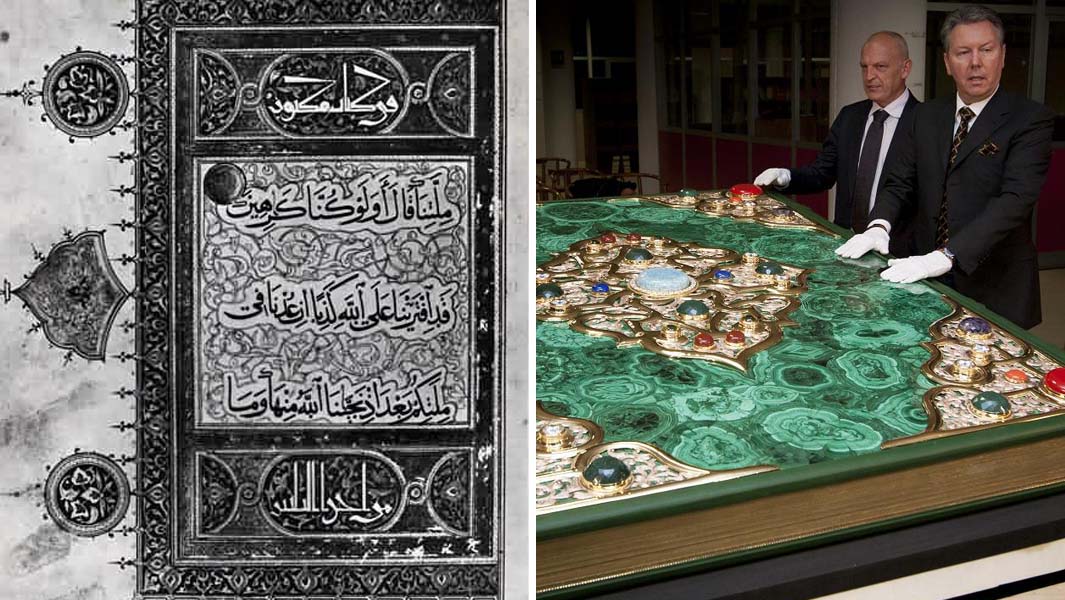 في كتاب مكنون
مِلَّتِنَا قَالَ أَوَلَوْ كُنَّا كَٰرِهِينَ
قَدِ افْتَرَيْنَا عَلَى اللَّهِ كَذِبًا إِنْ عُدْنَا فِي
مِلَّتِكُمْ بَعْدَ إِذْ نَجَّىٰنَا اللَّهُ مِنْهَا وَمَا
من اجزا